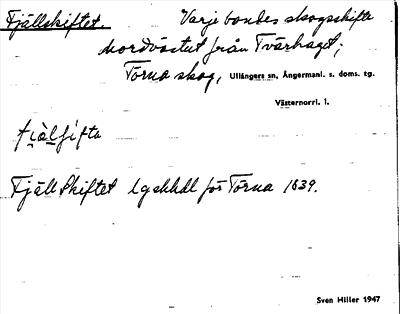 Fjällskiftet. Varje bondes skogsskifte
nordvästut från Tvärhaget;
Torna skog, Ullångers sn, Ångermanl. s. doms. tg.
Västernorrl. l.
Fjällskiftet lgskhdl för Torna 1839.
Sven Hiller 1947